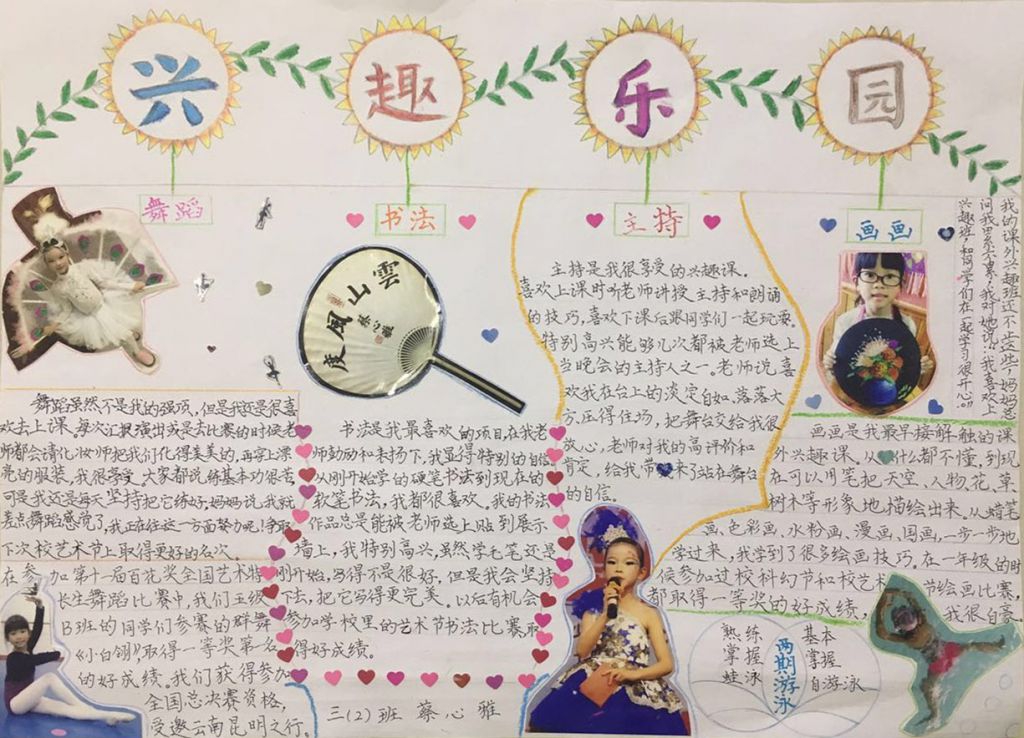 兴趣乐园
舞蹈
舞蹈虽然不是我的强项,但是我还是很喜
欢去上课。每次汇报演出或是去比赛的时候老
师都会请化妆师把我们化得美美的,再穿上漂
亮的服装,我很享受。大家都说练基本功很苦
可是我还是每天坚持把它练好,妈妈说,我就
差点舞蹈感觉了,我正在往这一方面努力呢!争取
下次校艺术节上取得更好的名次。
在参加第十一届百花奖全国艺术特
长生舞蹈比赛中,我们五级
B班的同学们参赛的群舞
《小白翎》,取得一等奖第一名
的好成绩。我们获得参加
全国总决赛资格,
受邀云南昆明之行。
书法
雲山風度
蔡心雅
书法是我最喜欢的项目,在我老
师鼓励和表扬下,我显得特别的自信
从刚开始学的硬笔书法到现在的
软笔书法,我都很喜欢。我的书法
作品总是能被老师选上贴到展示
墙上,我特别高兴,虽然学毛笔还是
刚开始,写得不是很好,但是我会坚持
下去,把它写得更完美。以后有机会
参加学校里的艺术节书法比赛取
得好成绩。
三(2)班 蔡心雅
主持
主持是我很享受的兴趣课。
喜欢上课时听老师讲授主持和朗诵
的技巧,喜欢下课后跟同学们一起玩耍。
特别高兴能够几次都被老师选上
当晚会的主持人之一。老师说,喜
欢我在台上的淡定自如、落落大
方、压得住场,把舞台交给我很
放心,老师对我的高评价和
肯定,给我带来了站在舞台
的自信。
画画
我的课外兴趣班还不止这些,妈妈总
问我累不累?我对她说:“我喜欢上
兴趣班,和同学们在一起学习很开心。”
画画是我最早接触的课
外兴趣课。从什么都不懂,到现
在可以用笔把天空、人物、花、草、
树木等形象地描绘出来。从蜡笔
画、色彩画、水粉画、漫画、国画,一步一步地
学过来,我学到了很多绘画技巧。在一年级的时
候参加过校科幻节和校艺术节绘画比赛,
都取得一等奖的好成绩,我很自豪。
熟练掌握蛙泳
两期游泳
基本掌握自游泳